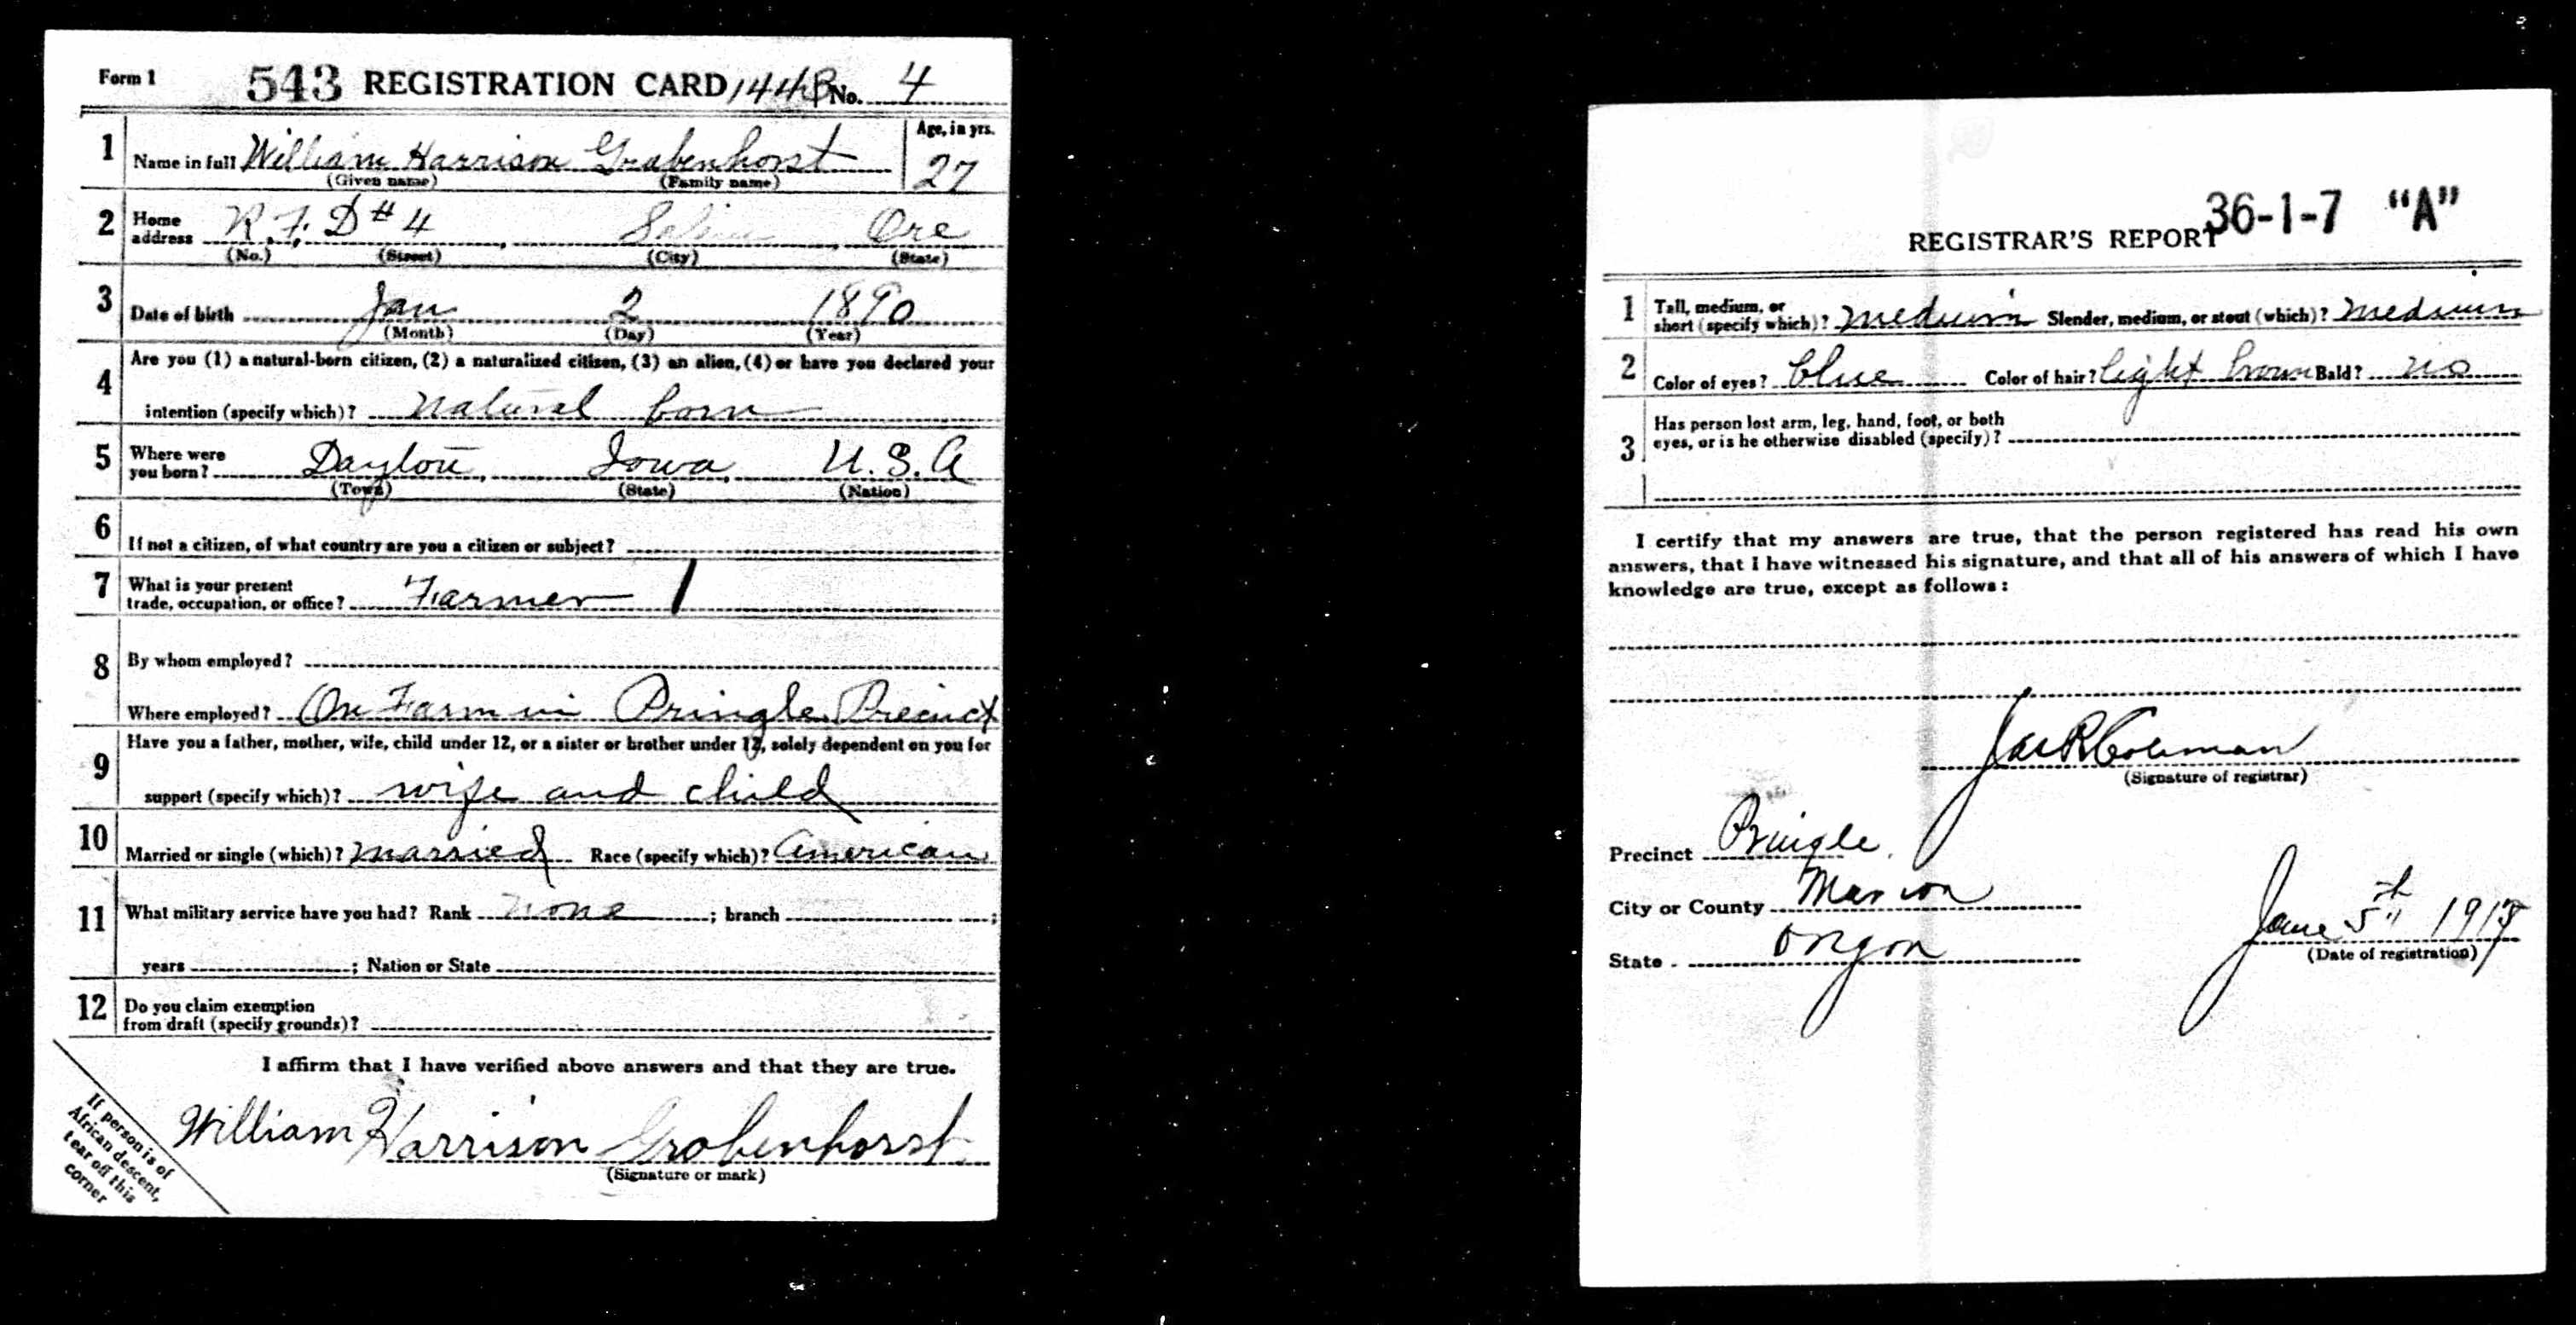 Form 1 543 REGISTRATION CARD 1443 No. 4
1 Name in full William Harrison Grabenhorst Age, in yrs. 27
(Given name) (Family name)
2 Home address R.F.D # 4 Salem Ore
(No.) (Street) (City) (State)
3 Date of birth Jan 2 1890
(Month) (Day) (Year)
4 Are you (1) a natural-born citizen, (2) a naturalized citizen, (3) an alien, (4) or have you declared your
intention (specify which)? Natural born
5 Where were you born? Dayton, Iowa, U.S.A
(Town) (State) (Nation)
6 If not a citizen, of what country are you a citizen or subject?
7 What is your present trade, occupation, or office? Farmer
8 By whom employed?
Where employed? On Farm in Pringle Precinct
9 Have you a father, mother, wife, child under 12, or a sister or brother under 12, solely dependent on you for
support (specify which)? wife and child
10 Married or single (which)? married Race (specify which)? American
11 What military service have you had? Rank None ; branch ;
years ; Nation or State
12 Do you claim exemption
from draft (specify grounds)?
I affirm that I have verified above answers and that they are true.
William Harrison Grabenhorst
(Signature or mark)
If person is of
African descent,
tear off this
corner
36-1-7 "A"
REGISTRAR'S REPORT
1 Tall, medium, or short (specify which)? medium Slender, medium, or stout (which)? medium
2 Color of eyes? blue Color of hair? light brown Bald? no
3 Has person lost arm, leg, hand, foot, or both
eyes, or is he otherwise disabled (specify)?
I certify that my answers are true, that the person registered has read his own
answers, that I have witnessed his signature, and that all of his answers of which I have
knowledge are true, except as follows:
(Signature of registrar)
Precinct Pringle
City or County Marion
State Oregon
June 5th 1917
(Date of registration)